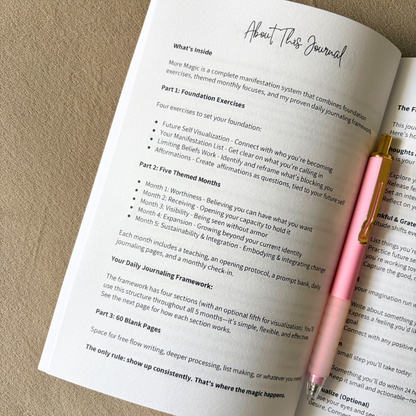 About This Journal
What's Inside
More Magic is a complete manifestation system that combines foundation
exercises, themed monthly focuses, and my proven daily journaling framework.
Part 1: Foundation Exercises
Four exercises to set your foundation:
• Future Self Visualization - Connect with who you're becoming
• Your Manifestation List - Get clear on what you're calling in
• Limiting Beliefs Work - Identify and reframe what's blocking you
• Afformations - Create afformations as questions, tied to your future self
Part 2: Five Themed Months
• Month 1: Worthiness - Believing you can have what you want
• Month 2: Receiving - Opening your capacity to hold it
• Month 3: Visibility - Being seen without armor
• Month 4: Expansion - Growing beyond your current identity
• Month 5: Sustainability & Integration - Embodying & integrating change
Each month includes a teaching, an opening protocol, a prompt bank, daily
journaling pages, and a monthly check-in.
Your Daily Journaling Framework:
The framework has four sections (with an optional fifth for visualization). You'll
use this structure throughout all 5 months—it's simple, flexible, and effective
See the next page for how each section works.
Part 3: 60 Blank Pages
Space for free flow writing, deeper processing, list making, or whatever you need
The only rule: show up consistently. That's where the magic happens.
The F
This jou
Here's ho
Explore y
Release w
Reflect in
nkful & Grate
titude shifts eve
List things you'r
Practice future
you're working
Capture the good,
your imagination run
Write about somethi
Express a feeling you'd lik
goal
Connect with any positive e
n
small step you'll take today:
Something you'll do within 24 h
Keep it small and actionable—
ualize (Optional)
se your eyes and